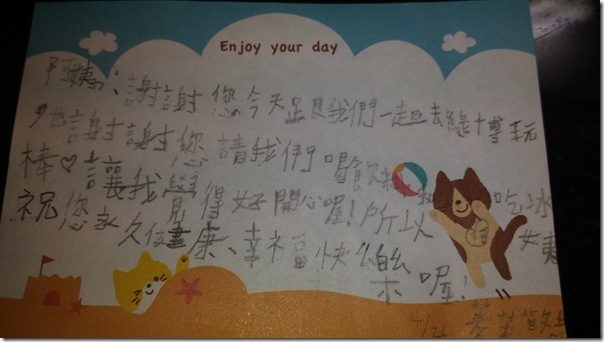 Enjoy your day
阿姨:謝謝您今天跟我們一起去綠博玩
也謝謝您請我們喝飲料和吃冰
棒♡讓我覺得好開心喔!所以
祝您永久健康、幸福快樂喔!
4/26 敬上